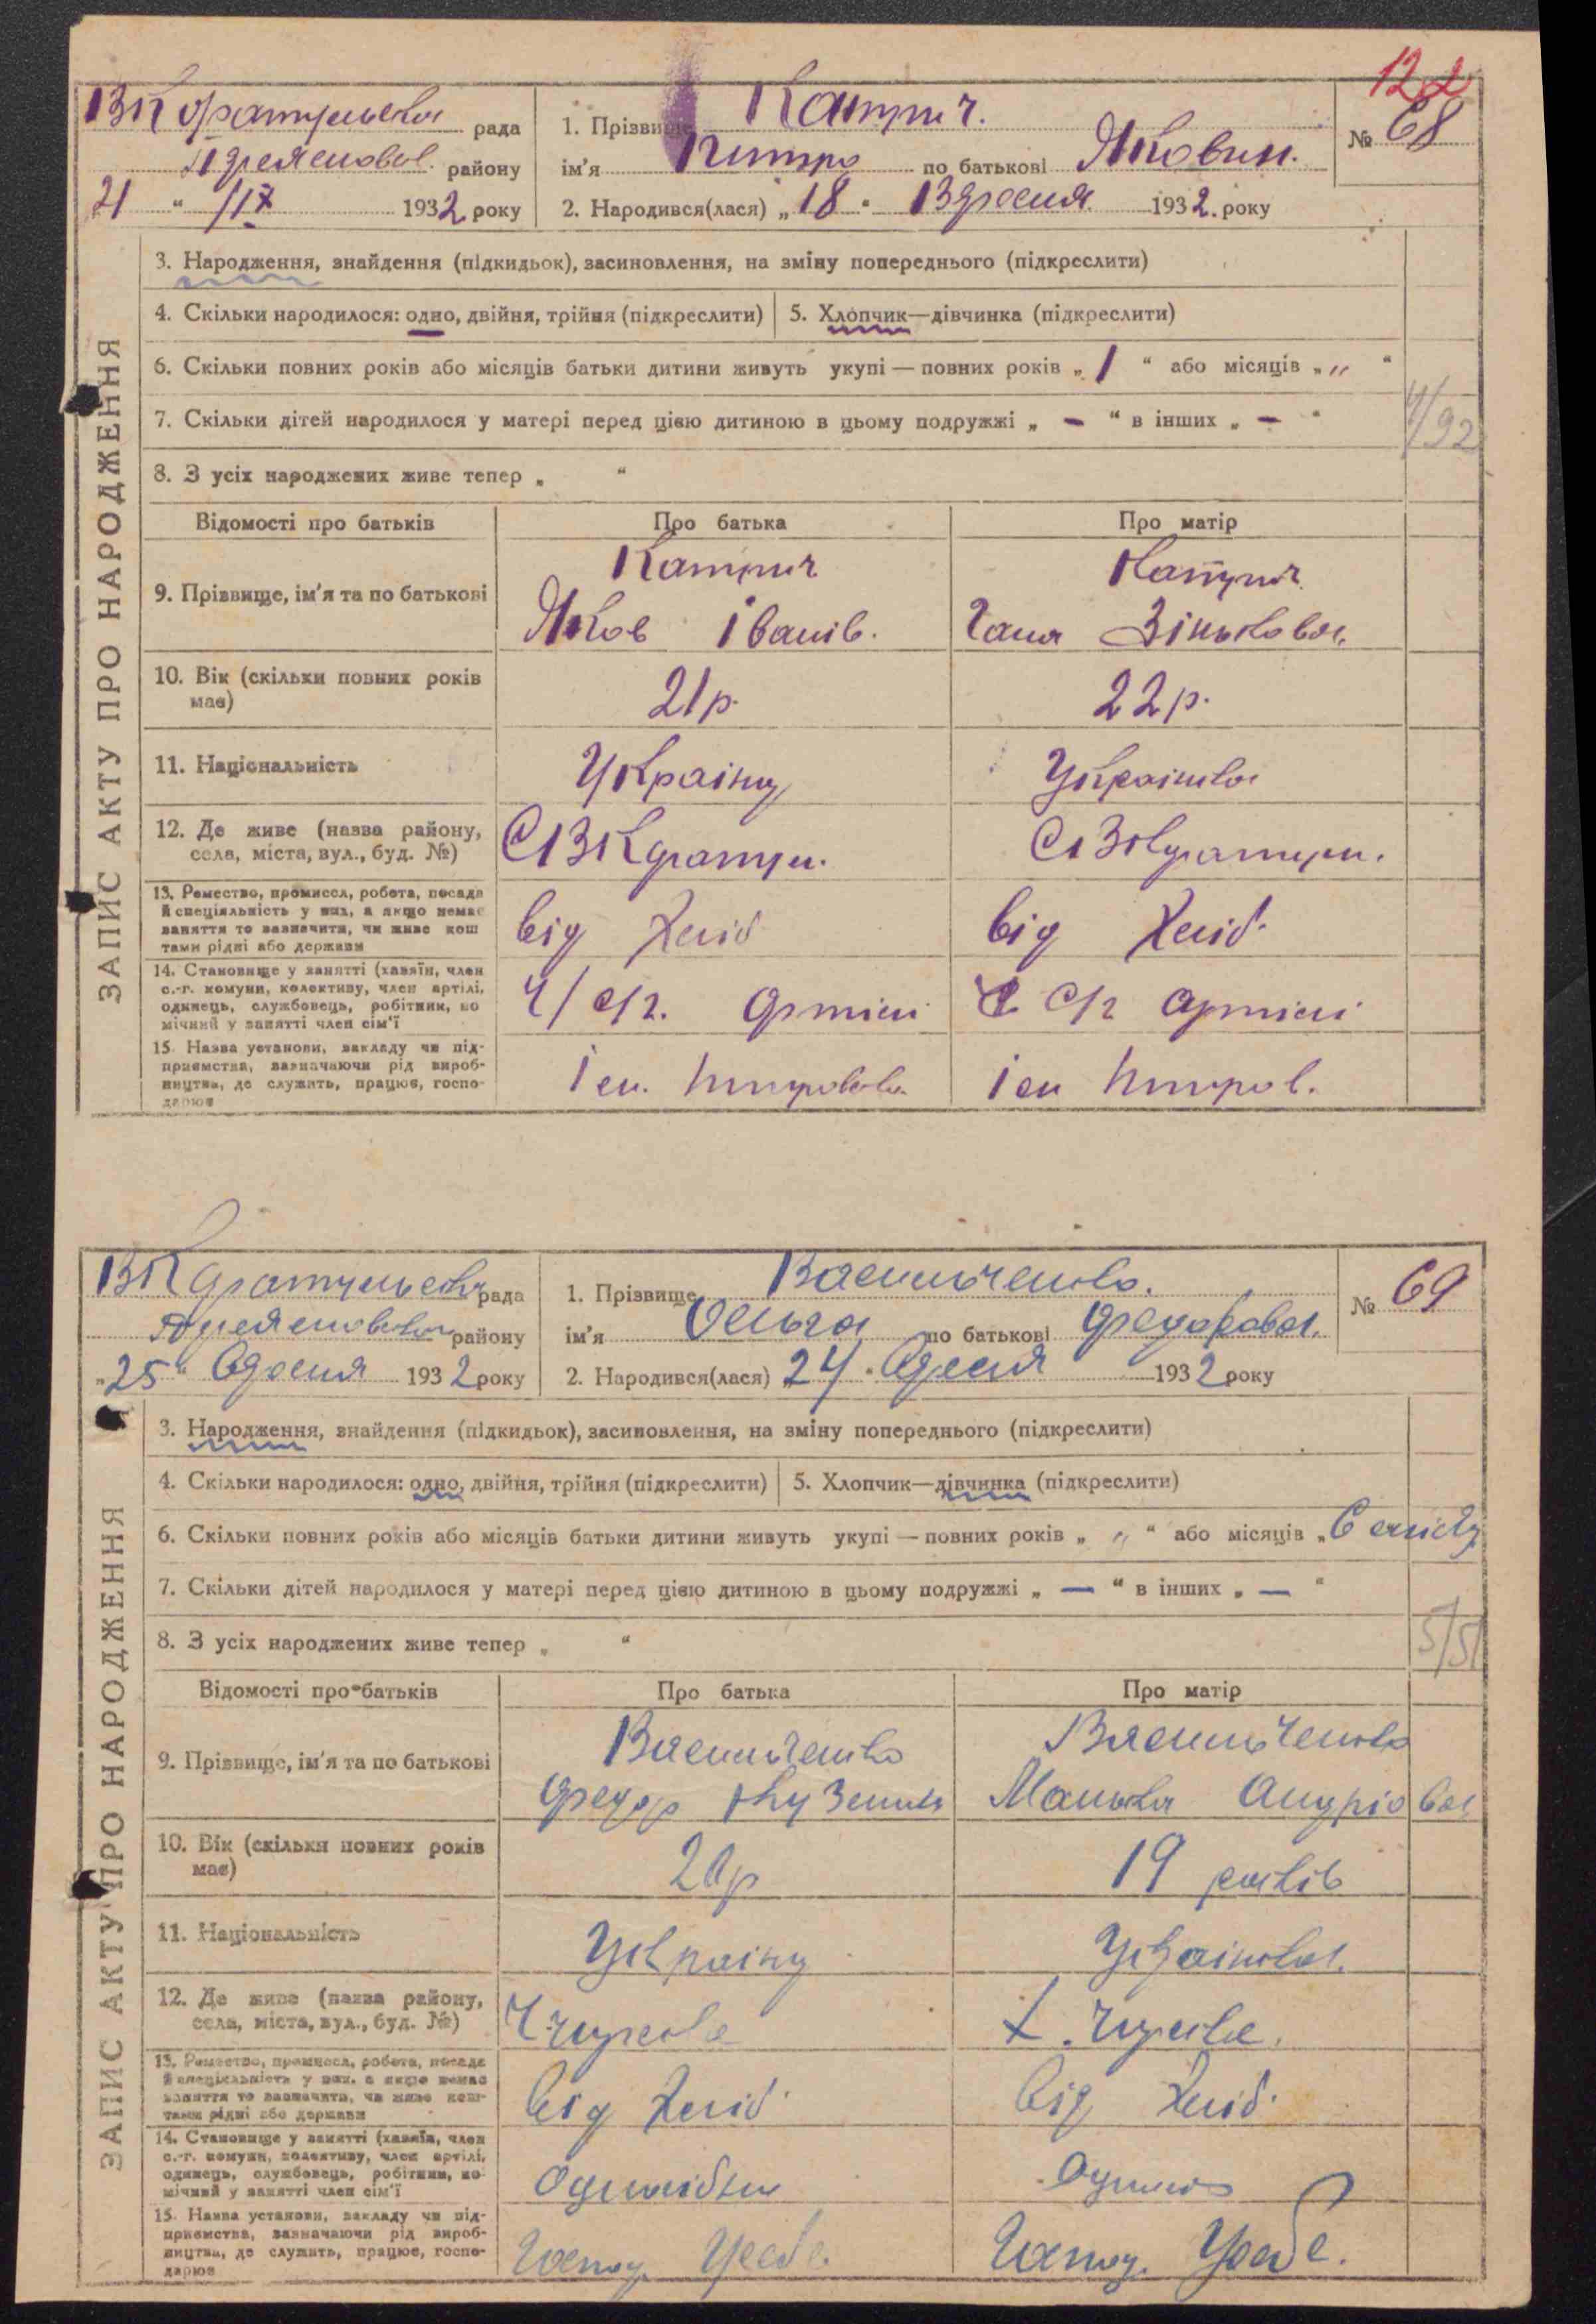 122
рада
1. Прізвище Катрич.
№ 68
району
ім'я Питро по батькові Якович.
21 " /IX 1932 року
2. Народився(лася) „18" Вдресня 1932. року
ЗАПИС АКТУ ПРО НАРОДЖЕННЯ
3. Народження, знайдення (підкидьок), засиновлення, на зміну попереднього (підкреслити)
4. Скільки народилося: одно, двійня, трійня (підкреслити)
5. Хлопчик—дівчинка (підкреслити)
6. Скільки повних років або місяців батьки дитини живуть укупі — повних років „ 1 " або місяців „ " "
7. Скільки дітей народилося у матері перед цією дитиною в цьому подружжі „ — " в інших „ — "
4/92
8. З усіх народжених живе тепер „ "
Відомості про батьків
Про батька
Про матір
9. Прізвище, ім'я та по батькові
Катрич
Яков Іванів.
Катрич
Ганя Зінькова.
10. Вік (скільки повних років
має)
21 р.
22 р.
11. Національність
Україну
Українка
12. Де живе (назва району,
села, міста, вул., буд. №)
13. Ремество, промисел, робота, посада
й спеціяльність у них, а якщо немає
заняття то зазначити, чи живе кош
тами рідні або держави
від Хліб
від Хліб.
14. Становище у занятті (хазяїн, член
с.-г. комуни, колективу, член артілі,
одинець, службовець, робітник, по
мічний у занятті член сім'ї
Ч/ с/г. артілі
Ч с/г артілі
15. Назва установи, закладу чи під-
приємства, зазначаючи рід вироб-
ництва, де служить, працює, госпо-
дарює
ім. Питровсько.
ім Питров.
рада
1. Прізвище Васильченко.
№ 69
району
ім'я Ольга по батькові Федорова.
„25" Вдресня 1932 року
2. Народився(лася) 24 " Вдресня 1932 року
ЗАПИС АКТУ ПРО НАРОДЖЕННЯ
3. Народження, знайдення (підкидьок), засиновлення, на зміну попереднього (підкреслити)
4. Скільки народилося: одно, двійня, трійня (підкреслити)
5. Хлопчик—дівчинка (підкреслити)
6. Скільки повних років або місяців батьки дитини живуть укупі — повних років „ " " або місяців „ 6
7. Скільки дітей народилося у матері перед цією дитиною в цьому подружжі „ — " в інших „ — "
5/51
8. З усіх народжених живе тепер „ "
Відомості про батьків
Про батька
Про матір
9. Прізвище, ім'я та по батькові
Васильченко
Федор
Васильченко
Манька Андріова
10. Вік (скільки повних років
має)
20 р
19 років
11. Національність
Україну
Українка.
12. Де живе (назва району,
села, міста, вул., буд. №)
13. Ремество, промисел, робота, посада
й спеціяльність у них, а якщо немає
заняття то зазначити, чи живе кош-
тами рідні або держави
від Хліб
від Хліб.
14. Становище у занятті (хазяїн, член
с.-г. комуни, колективу, член артілі,
одинець, службовець, робітник, по-
мічний у занятті член сім'ї
15. Назва установи, закладу чи під-
приємства, зазначаючи рід вироб-
ництва, де служить, працює, госпо-
дарює